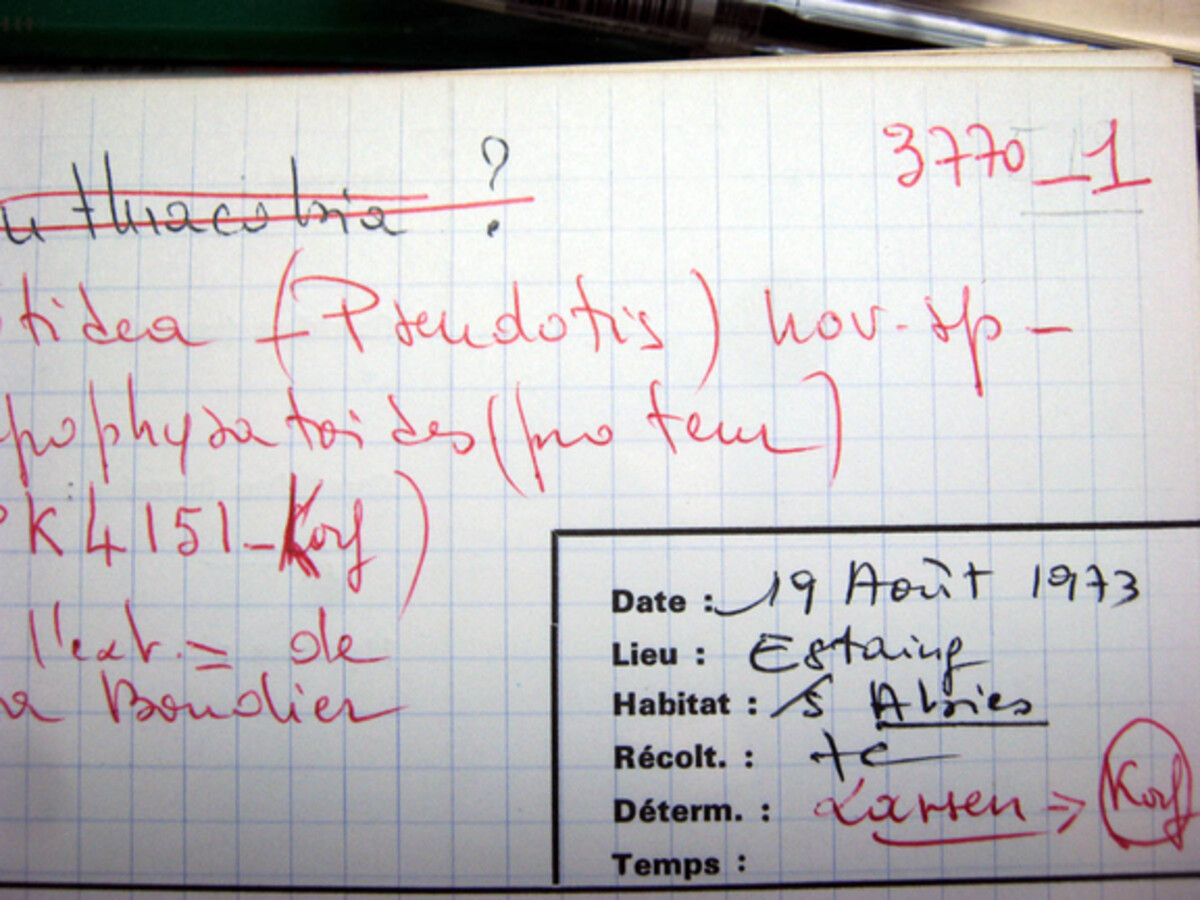 3770_1
thracobia ?
tidea (Pseudotis) nov. sp -
pophysatoides (pro tem)
K 4151 - Korf)
l'ext. = de
a Boudier
Date : 19 Août 1973
Lieu : Estaing
Habitat : /s Abies
Récolt. :
Déterm. : Larsen → Korf
Temps :